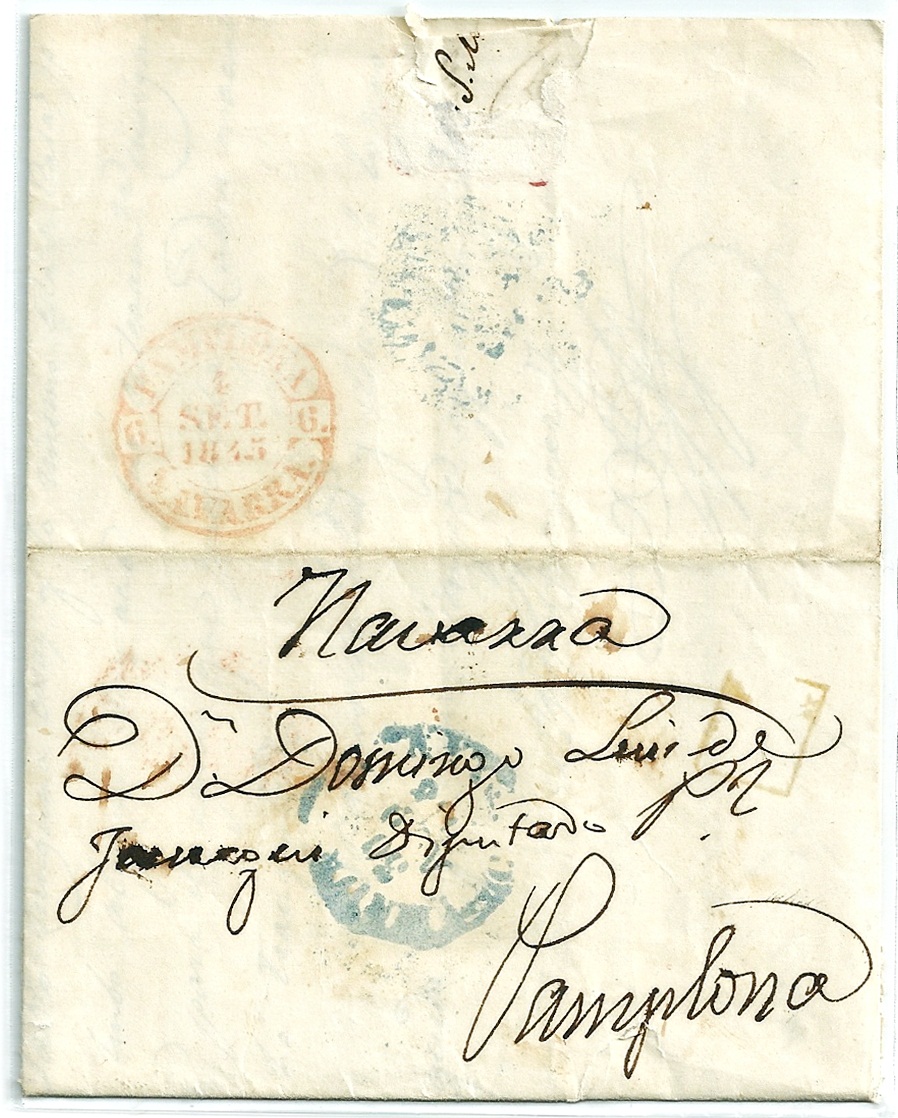 S. M
PAMPLONA
4
SET.
1845
G. G.
NAVARRA.
Navarra
Dn Domingo Luis de
Jauregui Diputado pr
Pamplona